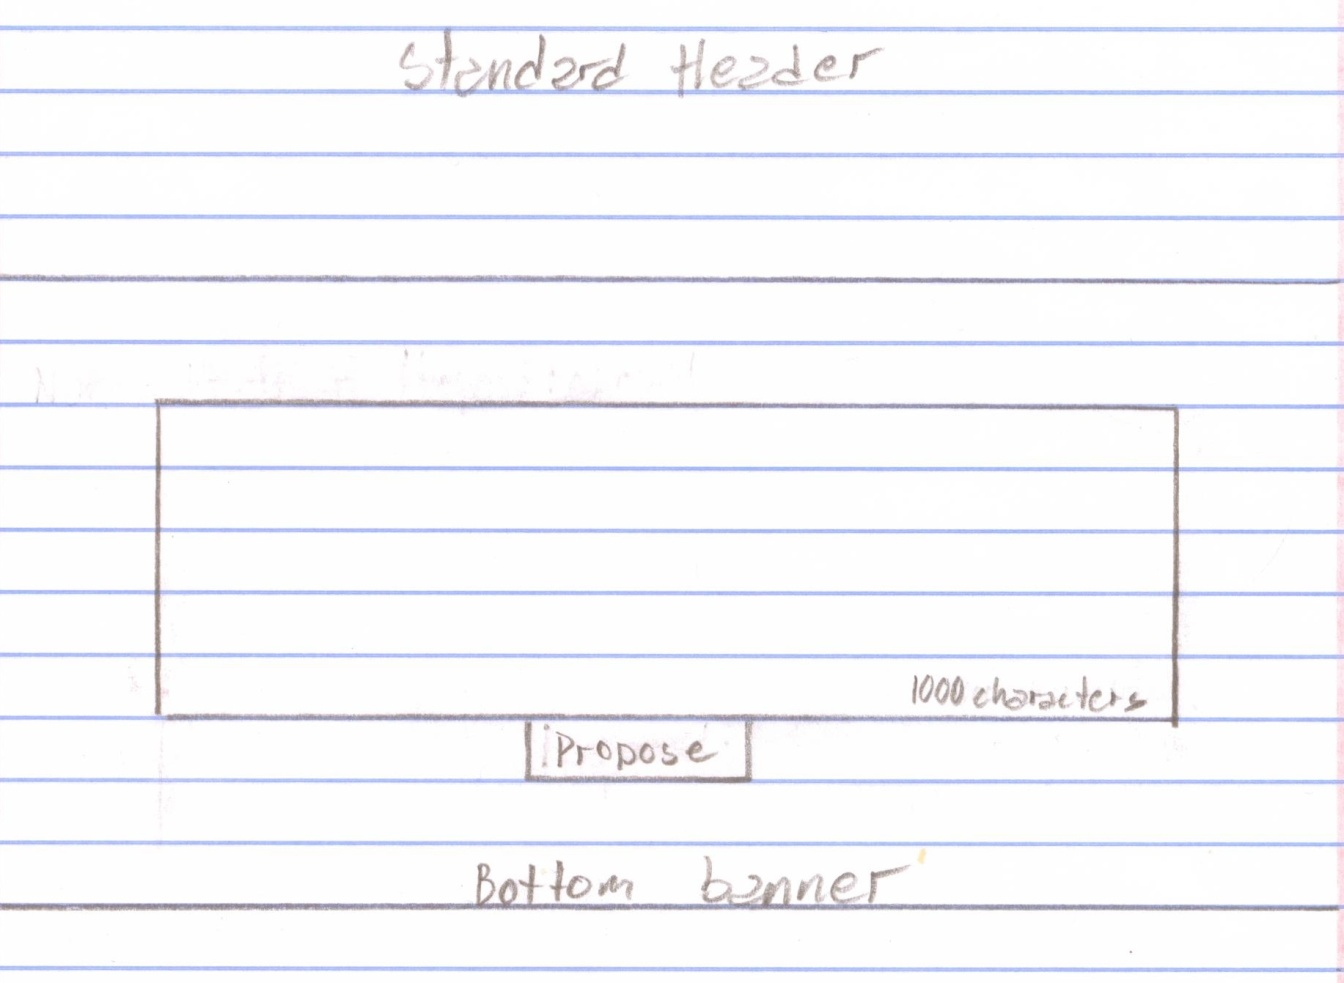 Standard Header
1000 characters
Propose
Bottom banner